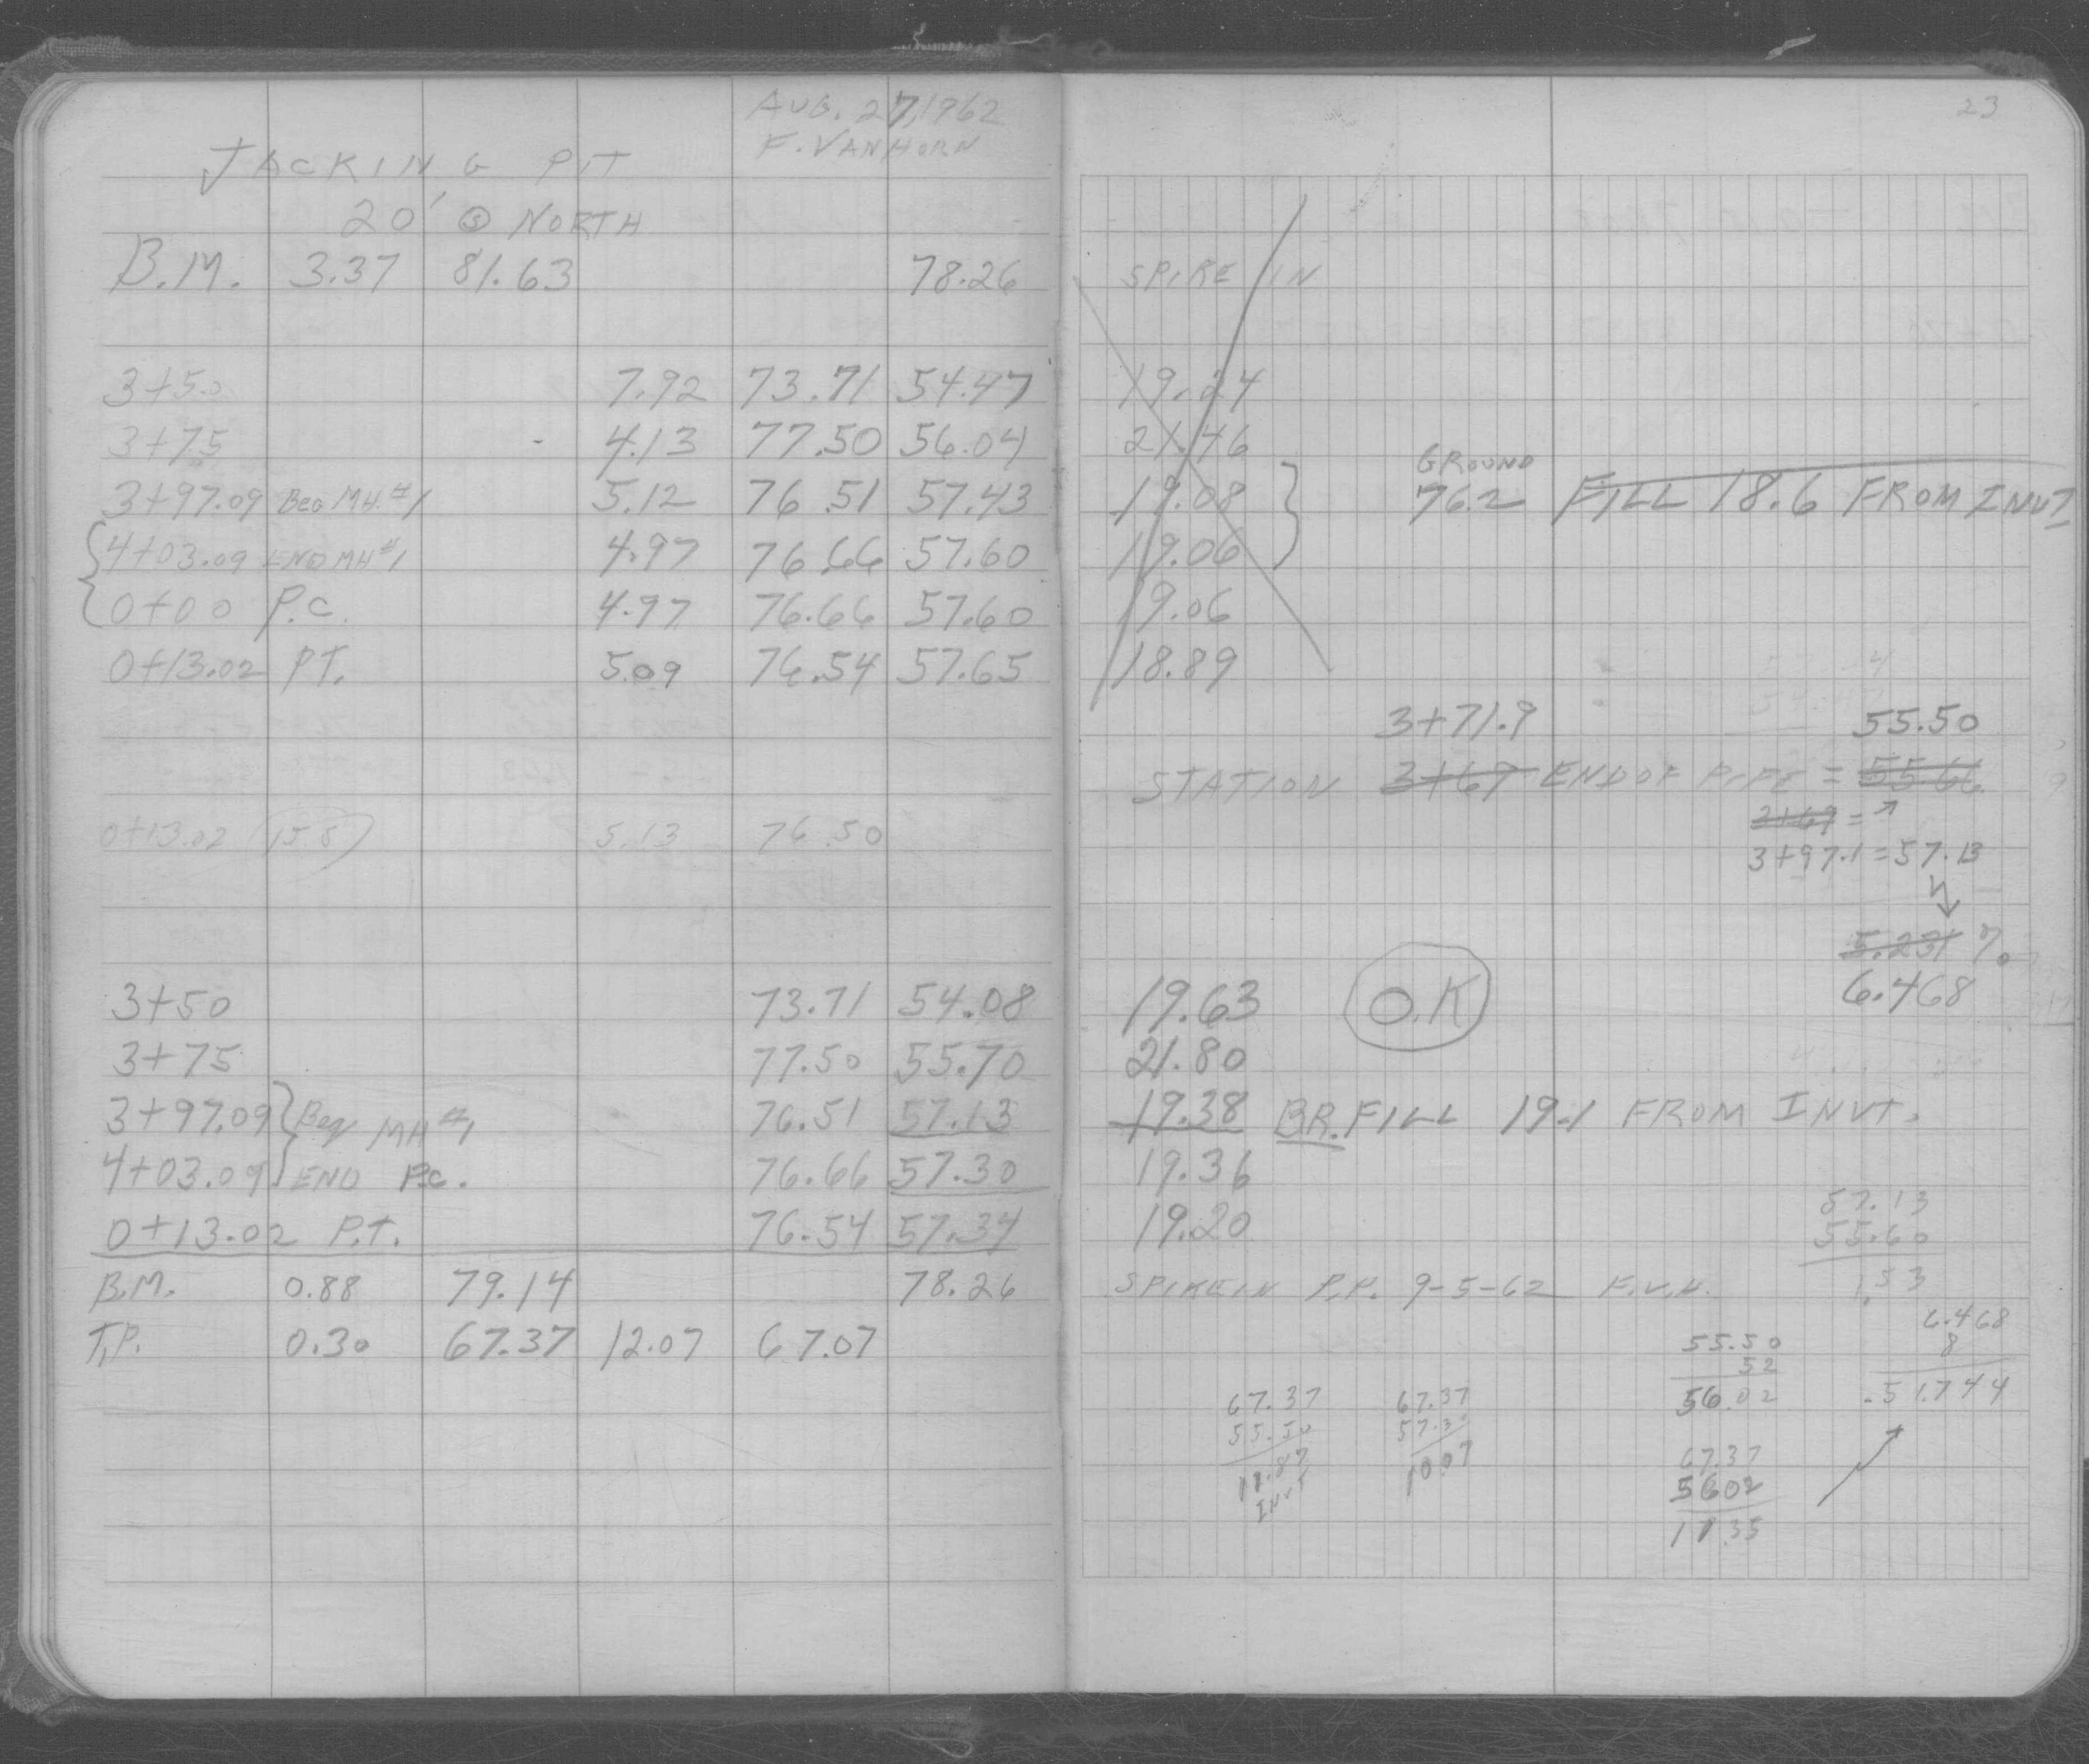 AUG. 27, 1962
F. VANHORN
JACKING PIT
20' @ NORTH
B.M. 3.37 81.63 78.26
3+50 7.92 73.71 54.47
3+75 - 4.13 77.50 56.04
3+97.09 Beg MH.#1 5.12 76.51 57.43
4+03.09 END MH#1 4.97 76.66 57.60
0+00 P.C. 4.97 76.66 57.60
0+13.02 PT. 5.09 76.54 57.65
0+13.02 (15.8) 5.13 76.50
3+50 73.71 54.08
3+75 77.50 55.70
3+97.09 Beg MH#1 76.51 57.13
4+03.09 END P.C. 76.66 57.30
0+13.02 P.T. 76.54 57.34
B.M. 0.88 79.14 78.26
T.P. 0.30 67.37 12.07 67.07
23
SPIKE IN
19.24
21.46
GROUND
19.08 76.2 FILL 18.6 FROM INVT
19.06
19.06
18.89
3+71.9 55.50
STATION 3+69 END OF PIPE = 55.66
3+69 =
3+97.1 = 57.13
5.231 %
6.468
19.63 O.K
21.80
19.38 BR. FILL 19.1 FROM INVT.
19.36
19.20
57.13
55.60
1.53
SPIKE IN P.P. 9-5-62 F.V.H.
6.468
8
.51.744
55.50
52
56.02
67.37
55.50
11.87
INVT
67.37
57.30
10.07
67.37
56.02
11.35